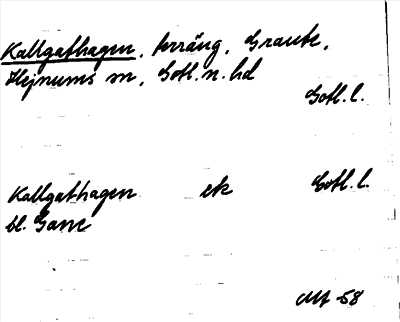 Kallgathagen, terräng, Graute,
Hejnums sn, Gotl. n. hd
Gotl. l.
Kallgathagen ek Gotl. l.
bl. Ganne
-58